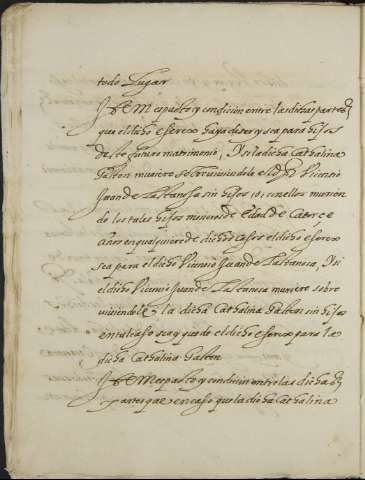 todo Lugar
ITEM es pacto y condicion entre las dichas partes
que el dicho escreex haya de ser y sea para hijos
deste futuro matrimonio, Y si la dicha Cathalina
Galbon muriere sobreviviendole el dho Vicencio
Juan de Lastanossa sin hijos, o con ellos murien
do los tales hijos menores de edad de catorce
años en qualquiere de dichos casos el dicho escreex
sea para el dicho Vicencio Juan de Lastanosa, Y si
el dicho Vicencio Juan de Lastanosa muriere sobre
viviendole la dicha Cathalina Galbon sin hijos
en tal caso sea y quede el dicho escreex para la
dicha Cathalina Galbon
ITEM es pacto y condicion entre las dichas
partes que en caso que la dicha Cathalina